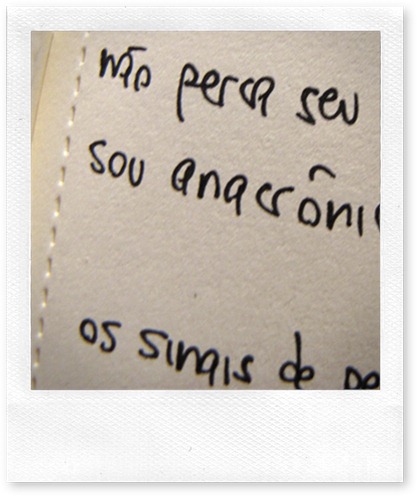 não perca seu
sou anacrôni
os sinais de